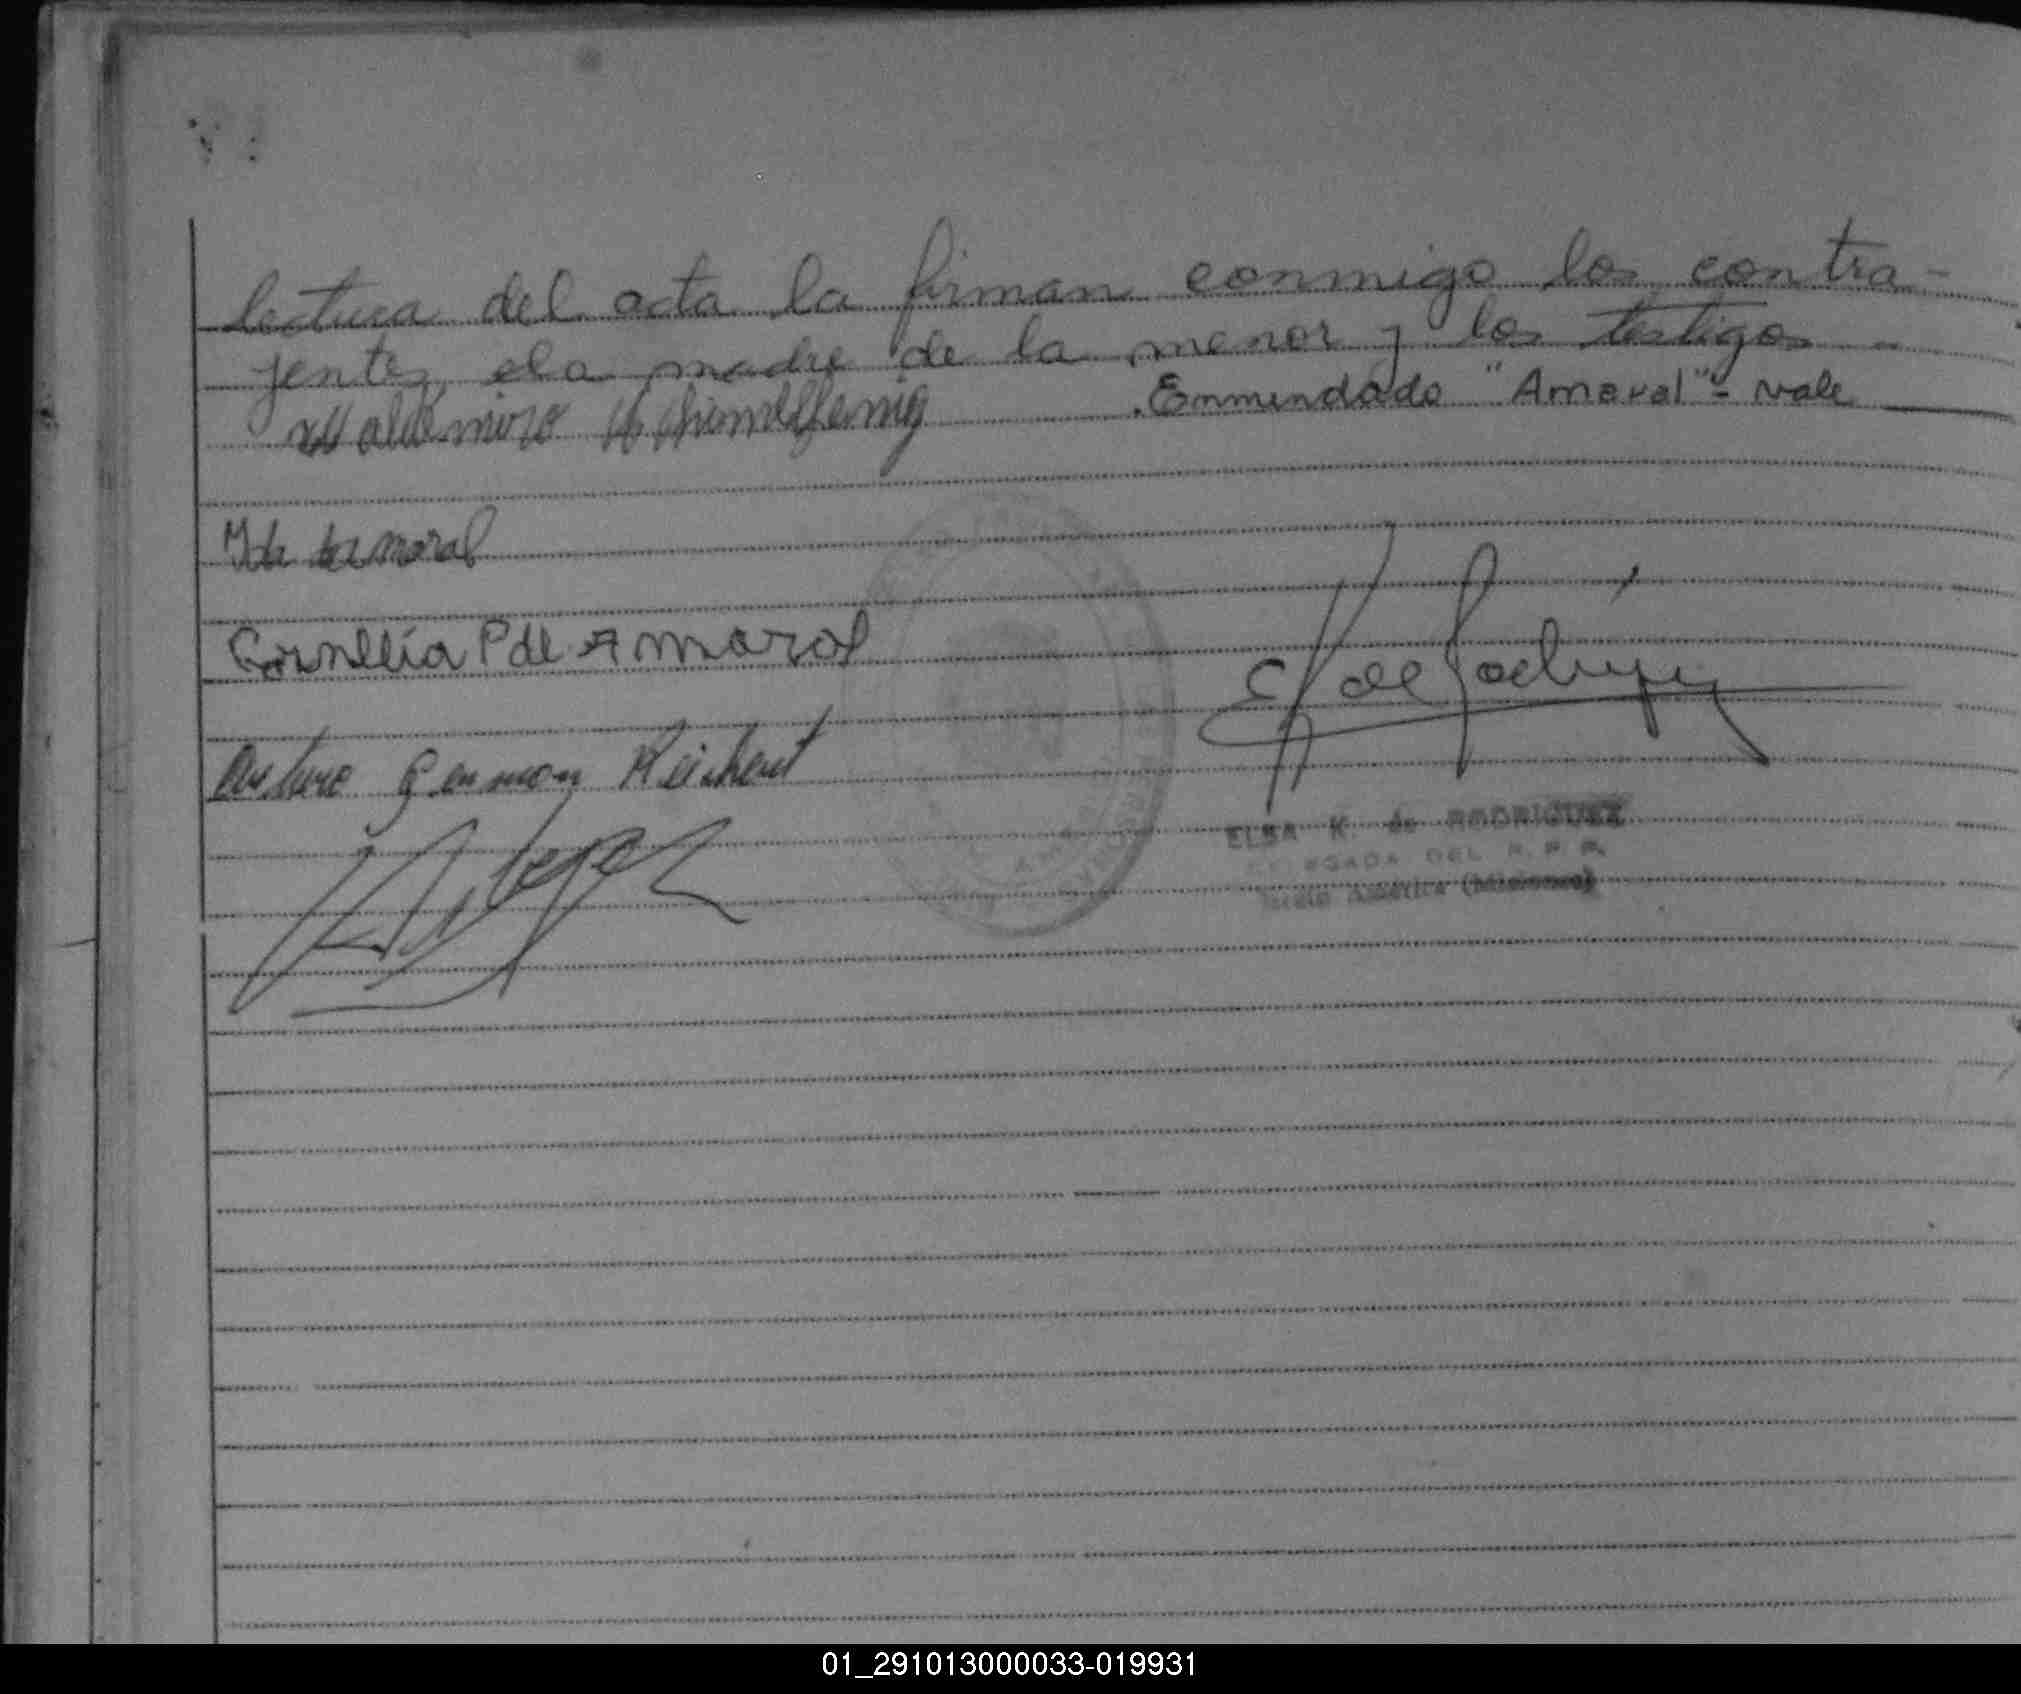 lectura del acta la firman conmigo los contra-
jentes, la madre de la menor y los testigos -
Enmendado "Amaral" - vale
Ida Amaral
Cornelia P de Amaral
Arturo German Reichert
E K de Rodríguez
ELSA K. de RODRIGUEZ
DELEGADA DEL R. P. P.
América (Misiones)
01_291013000033-019931